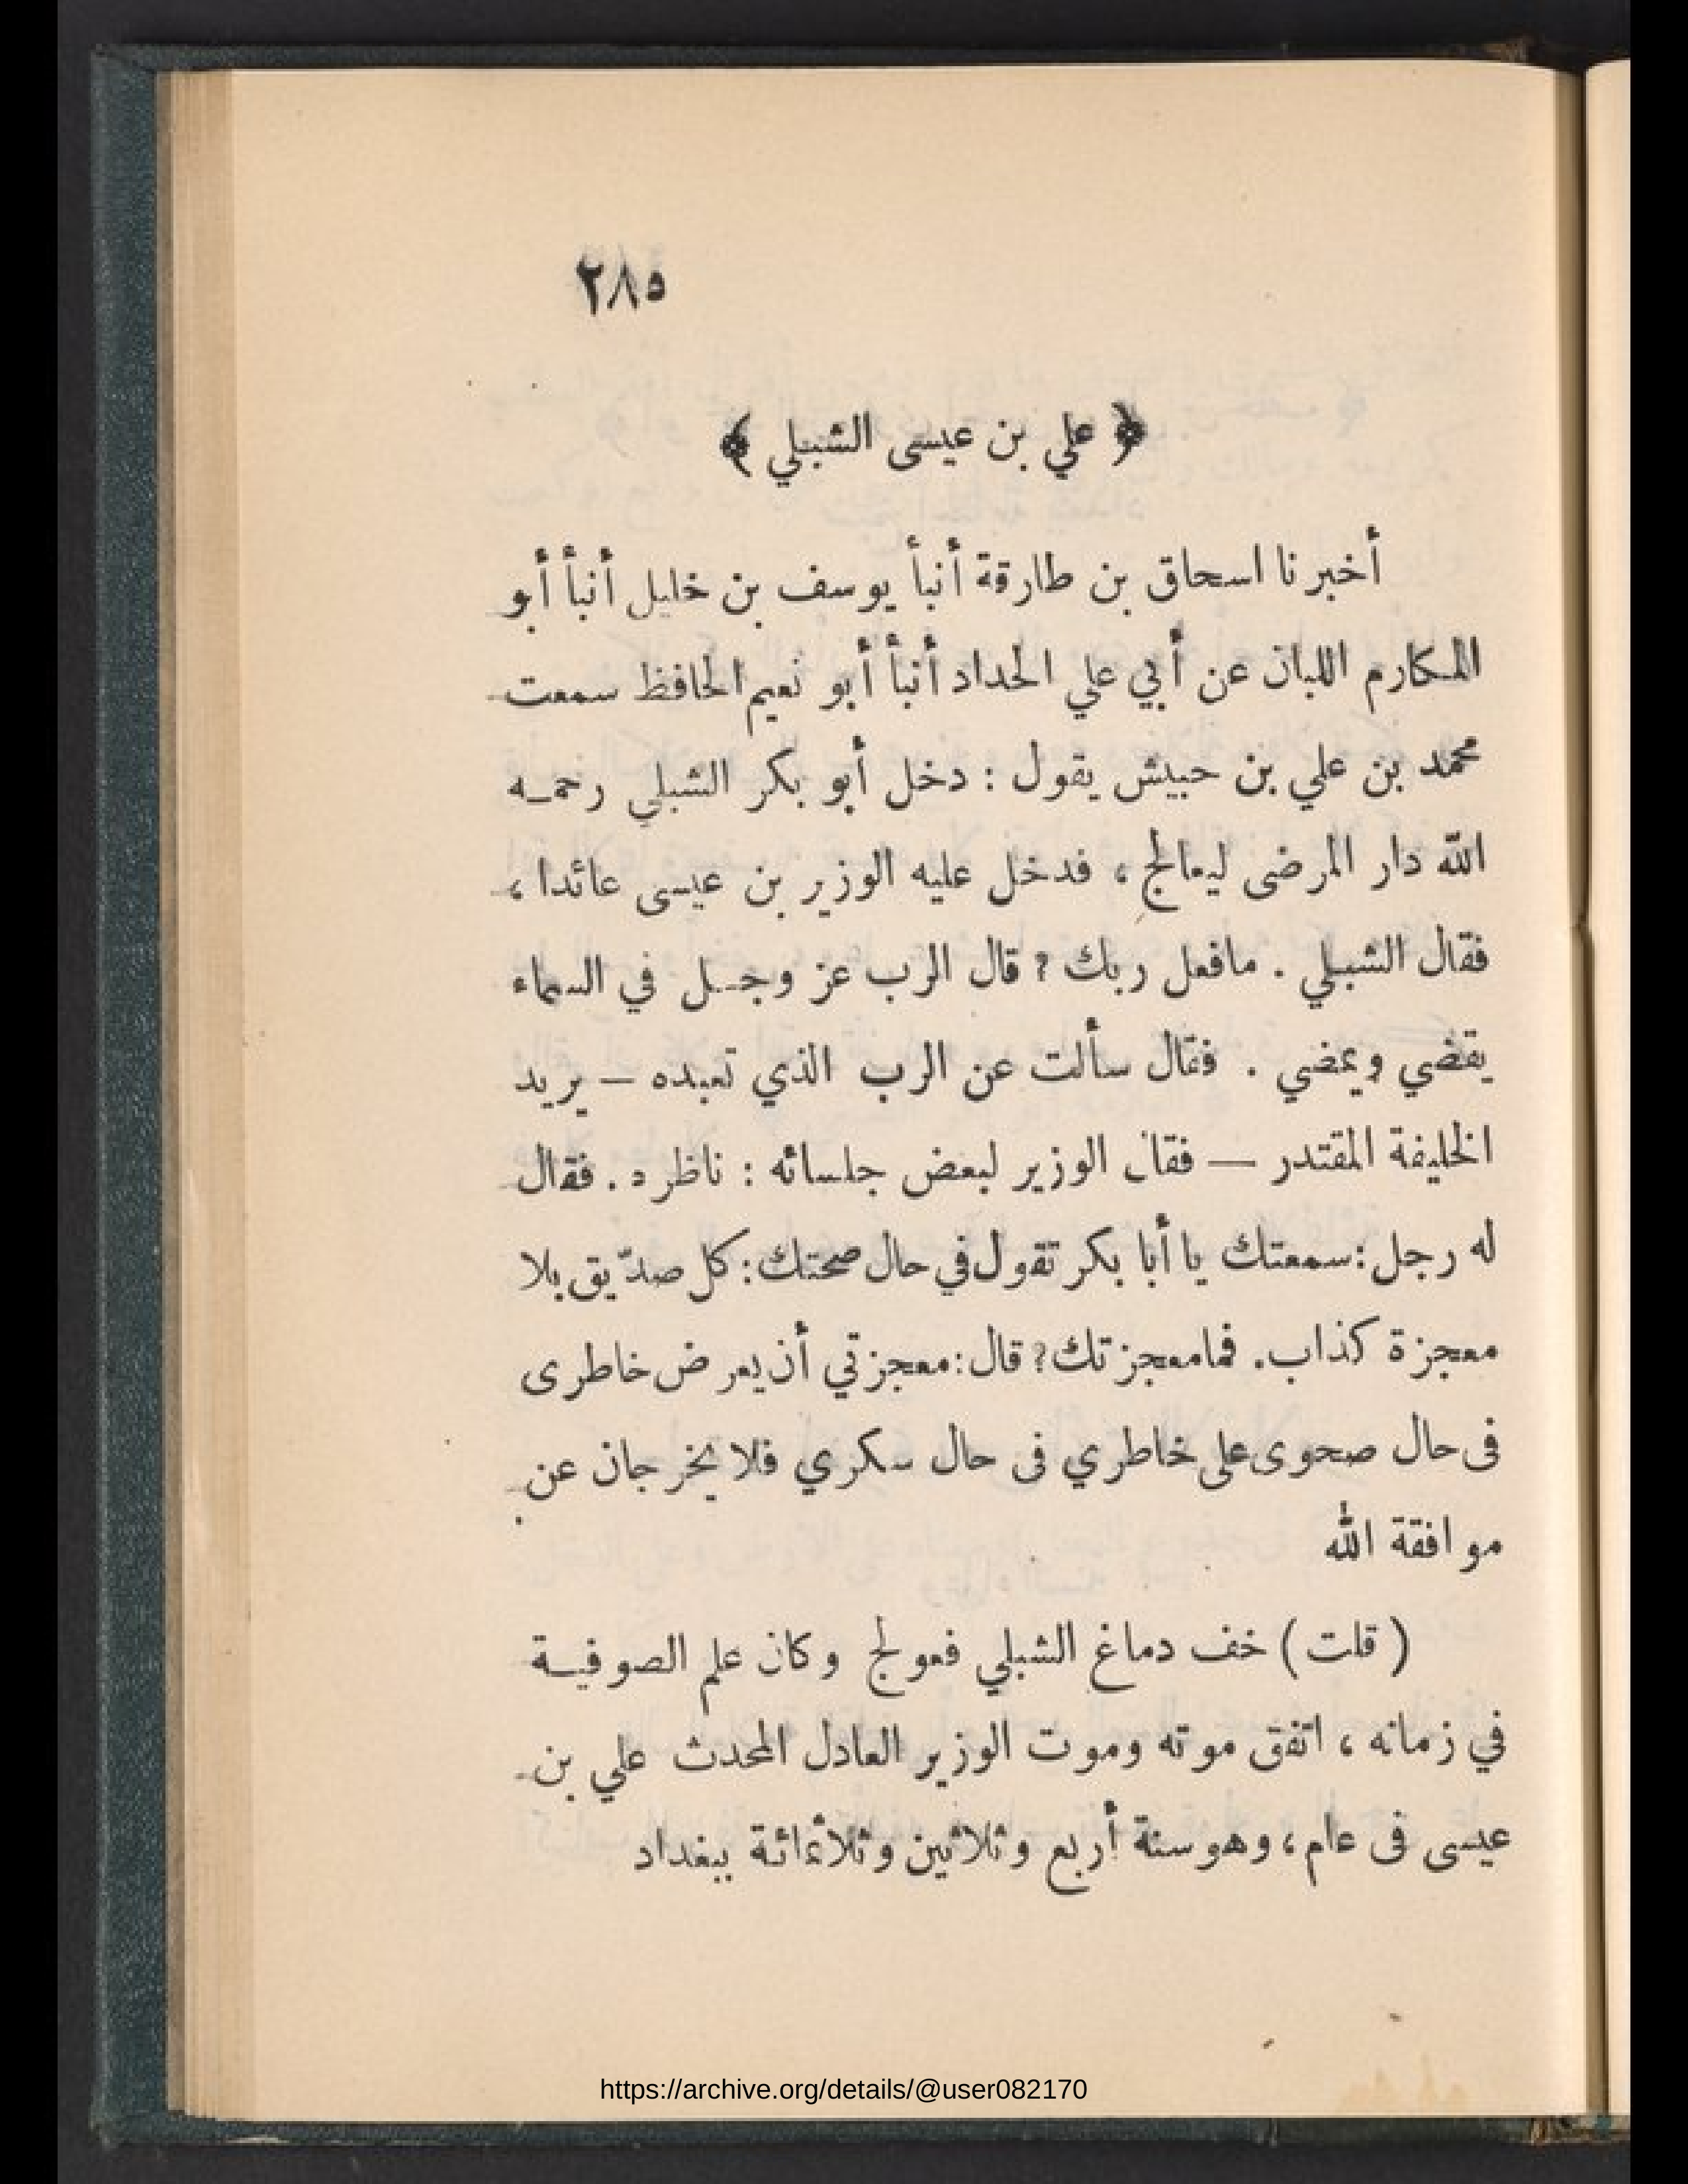 ٢٨٥
﴿ علي بن عيسى الشبلي ﴾
أخبرنا اسحاق بن طارقة أنبأ يوسف بن خليل أنبأ أبو
المكارم اللبان عن أبي علي الحداد أنبأ أبو نعيم الحافظ سمعت
محمد بن علي بن حبيش يقول : دخل أبو بكر الشبلي رحمه
الله دار المرضى ليعالج ، فدخل عليه الوزير بن عيسى عائدا ،
فقال الشبلي . مافعل ربك ؟ قال الرب عز وجل في السماء
يقضي ويمضي . فقال سألت عن الرب الذي تعبده — يريد
الخليفة المقتدر — فقال الوزير لبعض جلسائه : ناظره . فقال
له رجل : سمعتك يا أبا بكر تقول في حال صحتك : كل صدّيق بلا
معجزة كذاب . فما معجزتك ؟ قال : معجزتي أن يعرض خاطرى
فى حال صحوى على خاطري فى حال سكري فلا يخرجان عن
موافقة الله
( قلت ) خف دماغ الشبلي فعولج وكان علم الصوفية
في زمانه ، اتفق موته وموت الوزير العادل المحدث علي بن
عيسى فى عام ، وهو سنة أربع وثلاثين وثلاثمائة ببغداد
https://archive.org/details/@user082170